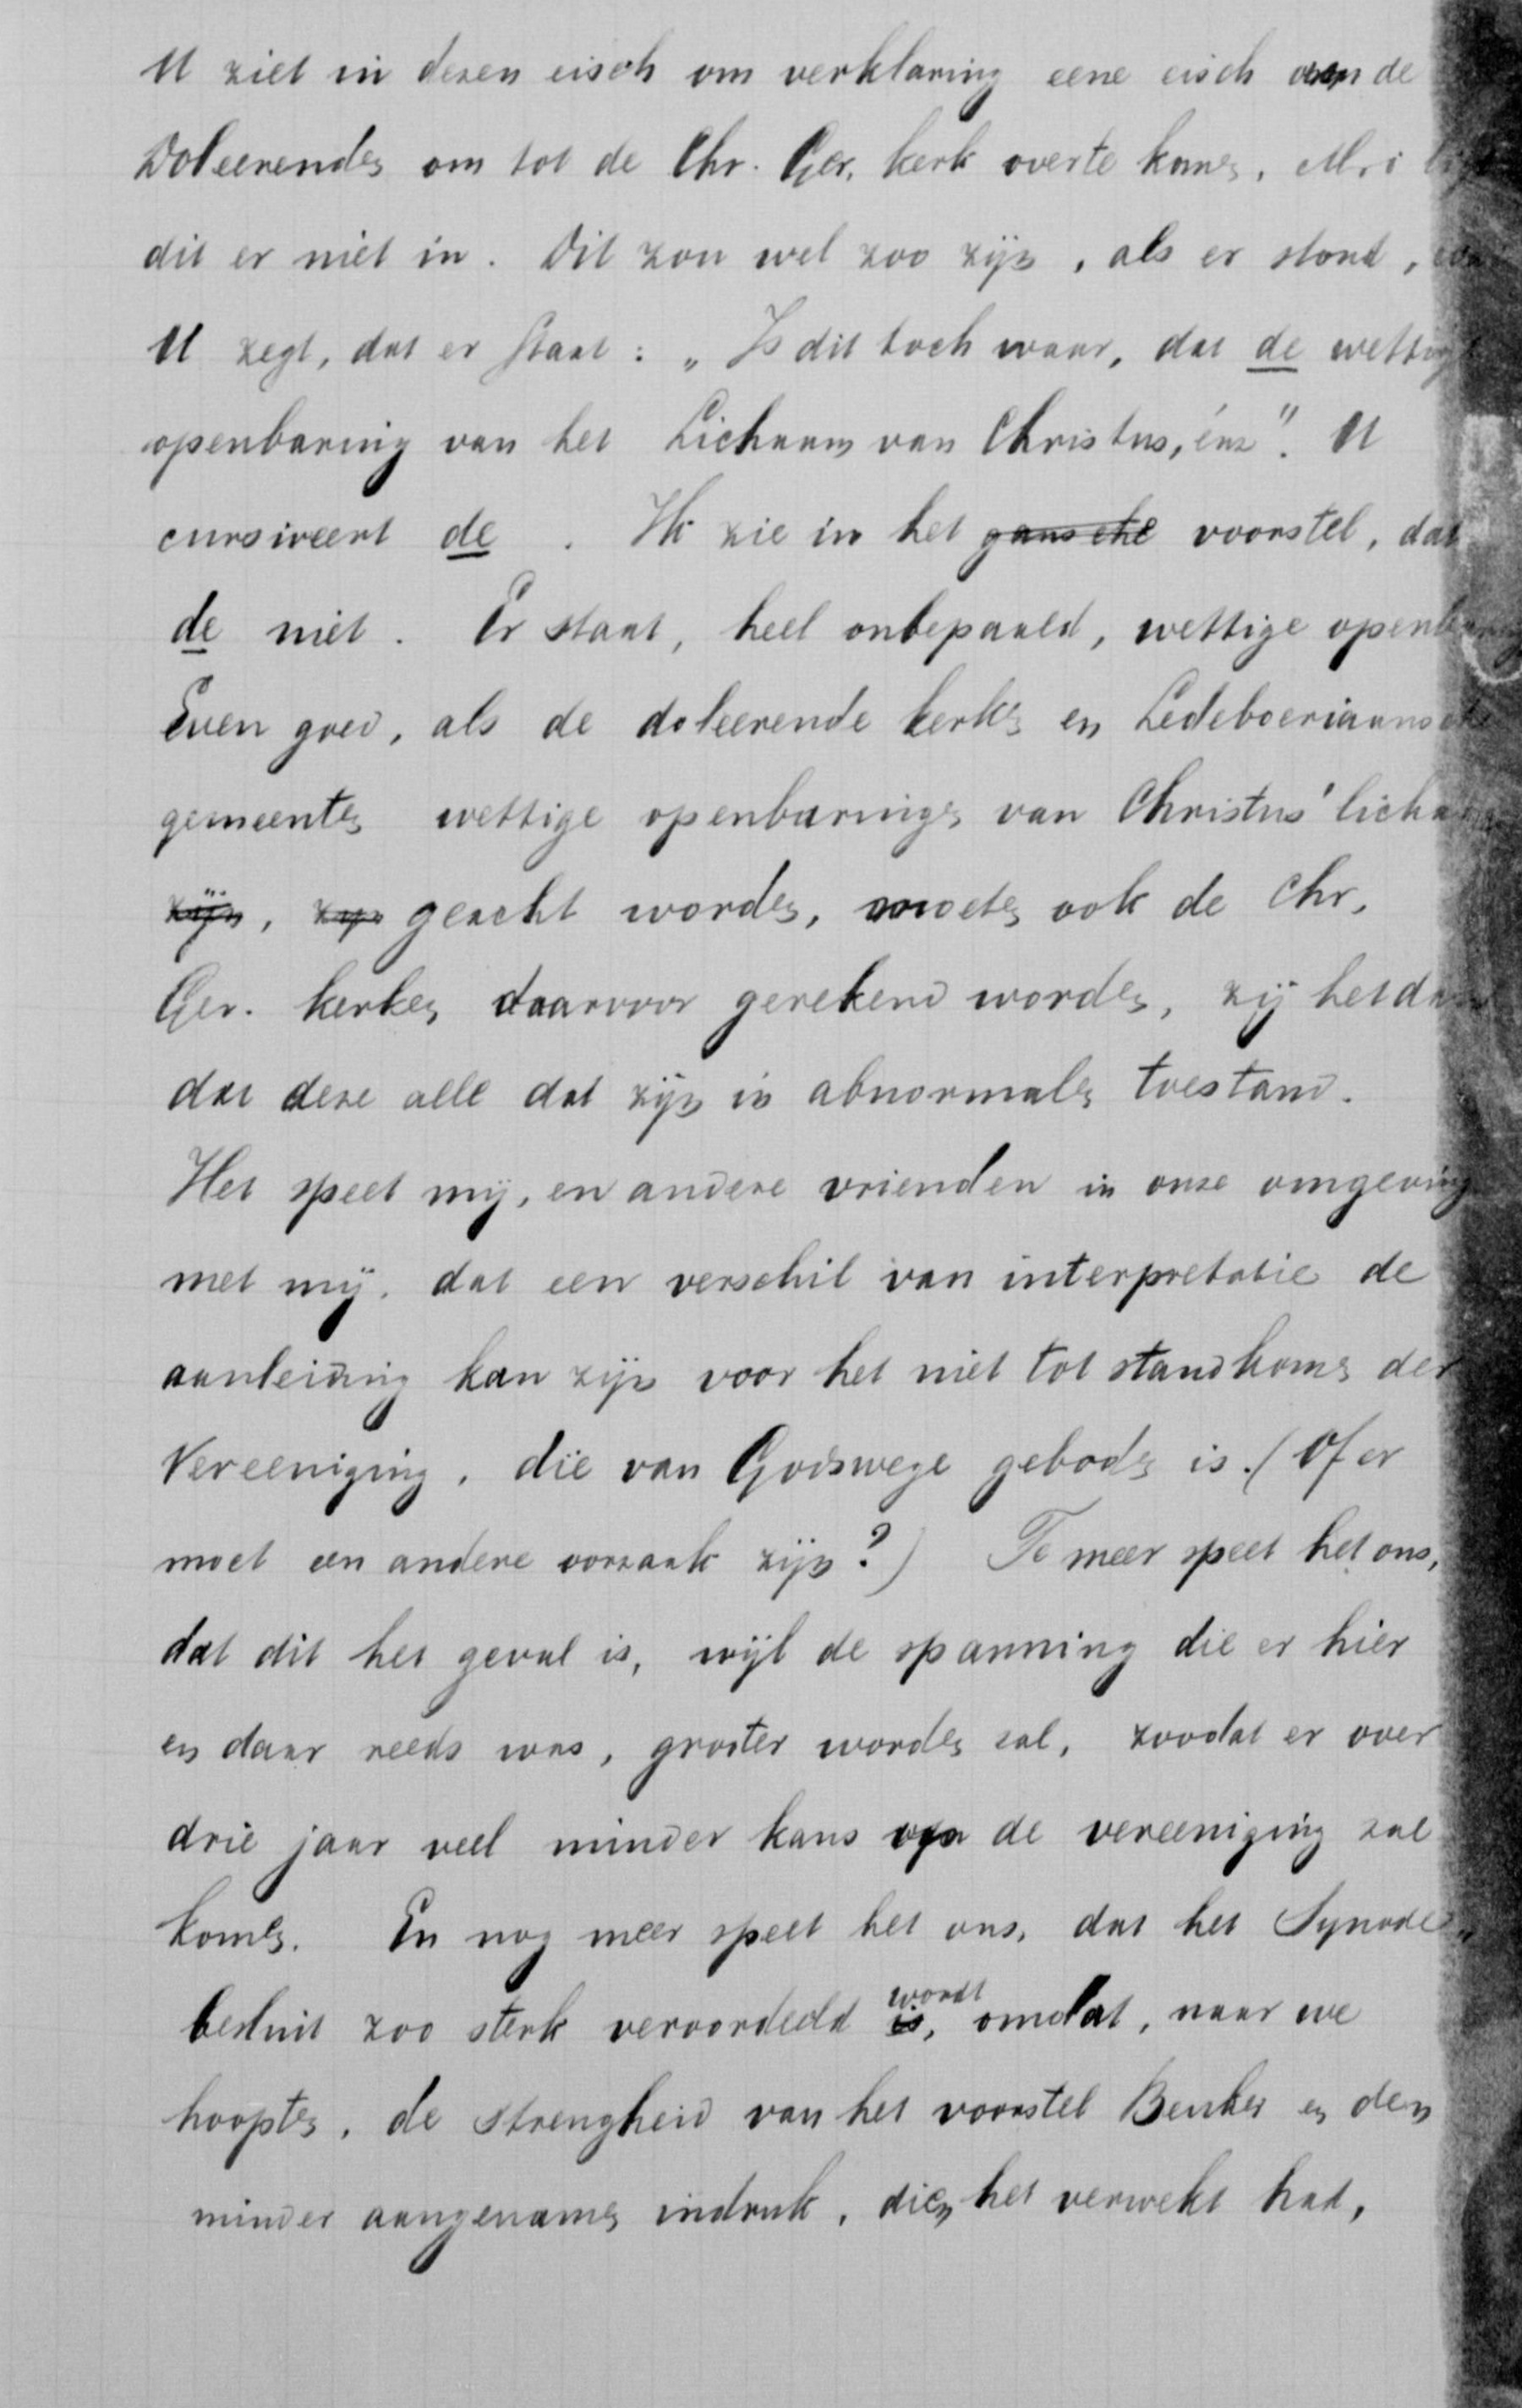 U ziet in dezen eisch om verklaring eene eisch aan de
Doleerenden om tot de Chr. Ger. kerk over te komen. M.i.
dit er niet in. Dit zou wel zoo zijn, als er stond,
U zegt, dat er staat: „Is dit toch waar, dat de wettige
openbaring van het Lichaam van Christus, enz". U
cursiveert de. Ik zie in het gansche voorstel, dat
de niet. Er staat, heel onbepaald, wettige openbaring
Even goed, als de doleerende kerken en Ledeboeriaansche
gemeenten wettige openbaringen van Christus' lichaam
zijn, zijn geacht worden, moeten ook de Chr.
Ger. kerken daarvoor gerekend worden, zij het dan
dat deze alle dat zijn in abnormalen toestand.
Het speet mij, en andere vrienden in onze omgeving
met mij, dat een verschil van interpretatie de
aanleiding kan zijn voor het niet tot standkomen der
Vereeniging, die van Godswege geboden is. (Of er
moet een andere oorzaak zijn?) Te meer speet het ons,
dat dit het geval is, wijl de spanning die er hier
en daar reeds was, grooter worden zal, zoodat er over
drie jaar veel minder kans op de vereeniging zal
komen. En nog meer speet het ons, dat het Synode„
besluit zoo sterk veroordeeld is, wordt omdat, naar we
hoopten, de strengheid van het voorstel Beuker en den
minder aangenamen indruk, dien het verwekt had,